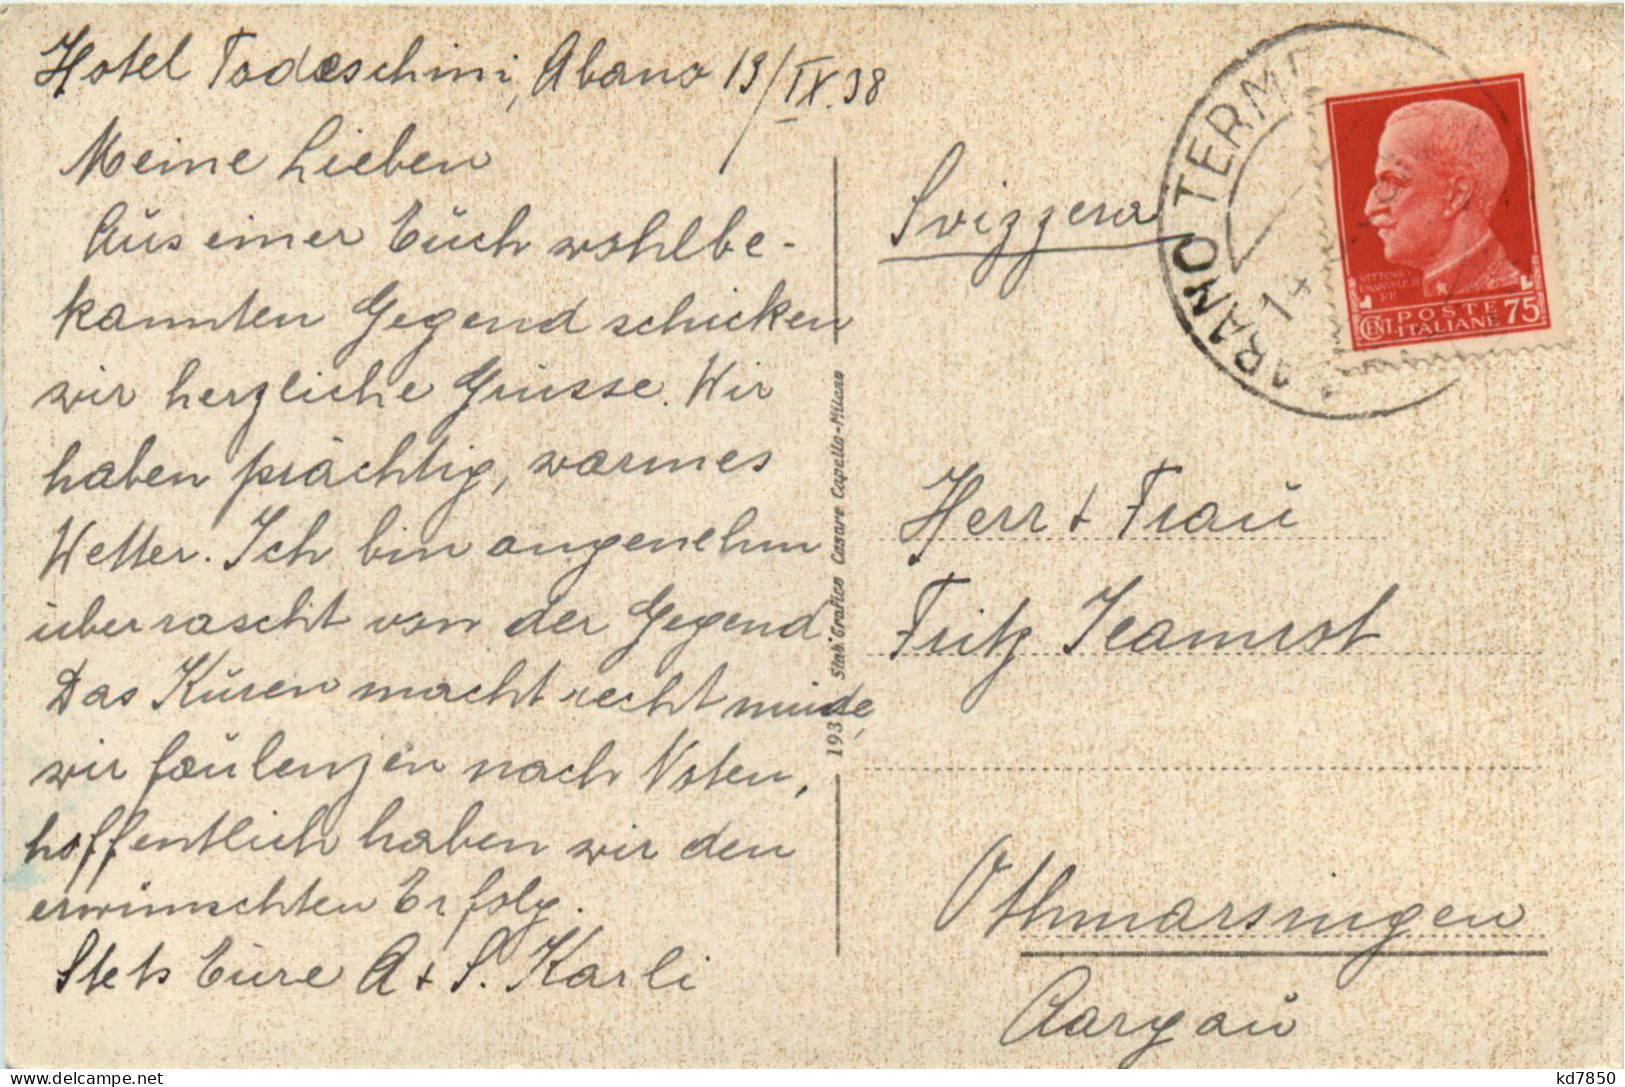 Hotel Todeschini, Abano 13/IX.38
Meine Lieben
Aus einer Euch wohlbe-
kannten Gegend schicken
wir herzliche Grüsse. Wir
haben prächtig, warmes
Wetter. Ich bin angenehm
überrascht von der Gegend
Das Kuren macht recht müde,
wir faulenzen nach Noten,
hoffentlich haben wir den
erwünschten Erfolg.
Stets Eure A + S. Karli
193
Stab. Grafico Cesare Capello-Milano
Svizzera
ABANO TERME
VITTORIO
EMANUELE III
RE
POSTE
ITALIANE
CENT. 75
Herr + Frau
Fritz
Othmarsingen
Aargau
kd7850